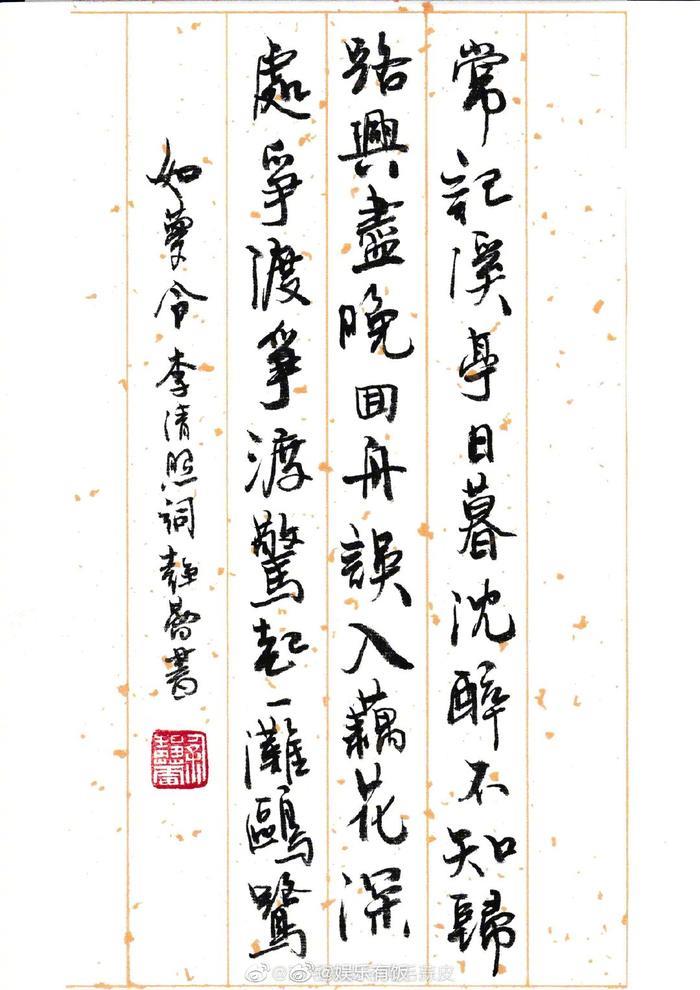 常記溪亭日暮沈醉不知歸
路興盡晚回舟誤入藕花深
處爭渡爭渡驚起一灘鷗鷺
如夢令 李清照詞
書
@娱乐有饭